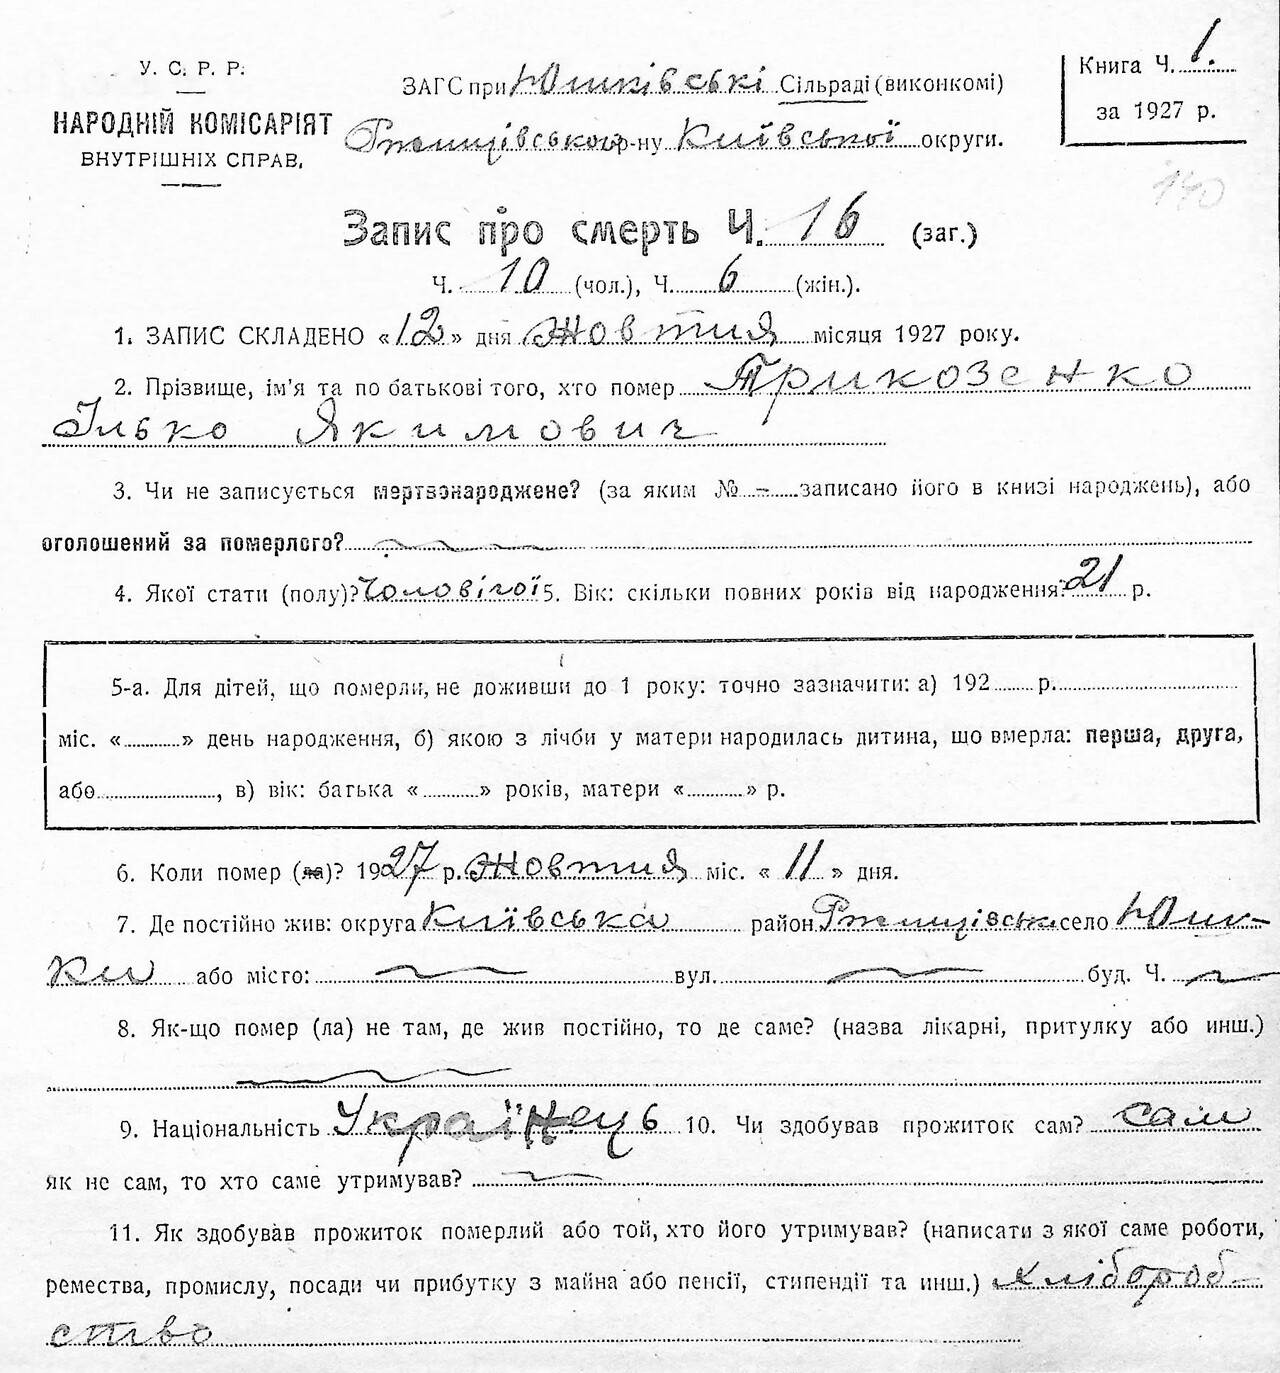 У. С. Р. Р.
НАРОДНІЙ КОМІСАРІЯТ
ВНУТРІШНІХ СПРАВ,
ЗАГС при Юшківські Сільраді (виконкомі)
Ржищівського р-ну Київської округи.
Книга Ч. 1.
за 1927 р.
140
Запис про смерть Ч. 16 (заг.)
Ч. 10 (чол.), Ч. 6 (жін.).
1. ЗАПИС СКЛАДЕНО «12» дня Жовтня місяця 1927 року.
2. Прізвище, ім'я та по батькові того, хто помер Трикозенко
Ілько Якимович
3. Чи не записується мертвонароджене? (за яким № – записано його в книзі народжень), або
оголошений за померлого?
4. Якої стати (полу)? Чоловічої 5. Вік: скільки повних років від народження? 21 р.
5-а. Для дітей, що померли, не доживши до 1 року: точно зазначити: а) 192 р.
міс. « » день народження, б) якою з лічби у матери народилась дитина, що вмерла: перша, друга,
або , в) вік: батька « » років, матери « » р.
6. Коли помер (ла)? 1927 р. Жовтня міс. « 11 » дня.
7. Де постійно жив: округа Київська район Ржищівськ село Юш-
ки або місто: вул. буд. Ч.
8. Як-що помер (ла) не там, де жив постійно, то де саме? (назва лікарні, притулку або инш.)
9. Національність Українець 10. Чи здобував прожиток сам? сам
як не сам, то хто саме утримував?
11. Як здобував прожиток померлий або той, хто його утримував? (написати з якої саме роботи,
ремества, промислу, посади чи прибутку з майна або пенсії, стипендії та инш.) хлібороб-
ство